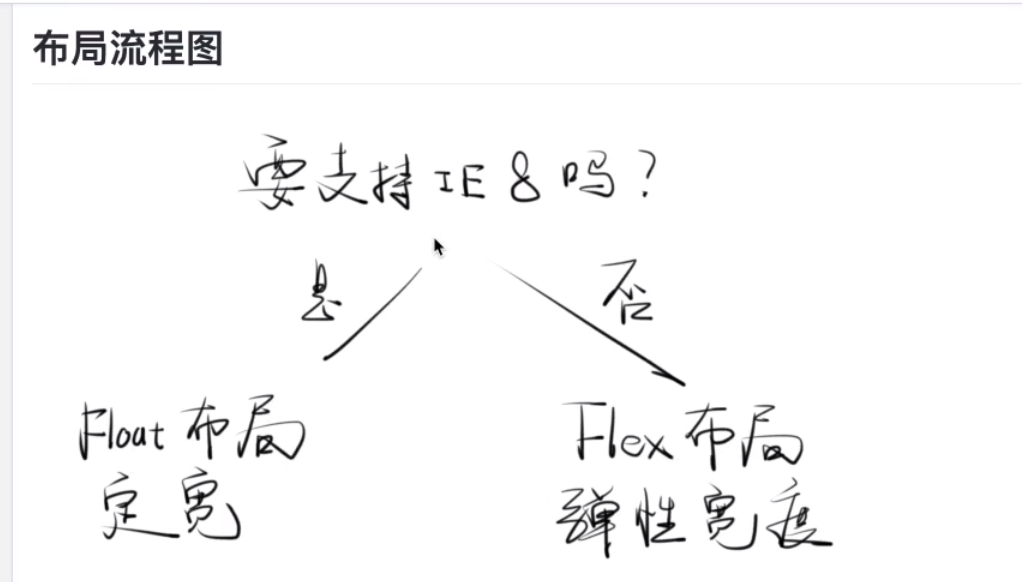 布局流程图
要支持IE8吗?
是
否
Float布局
定宽
Flex布局
弹性宽度